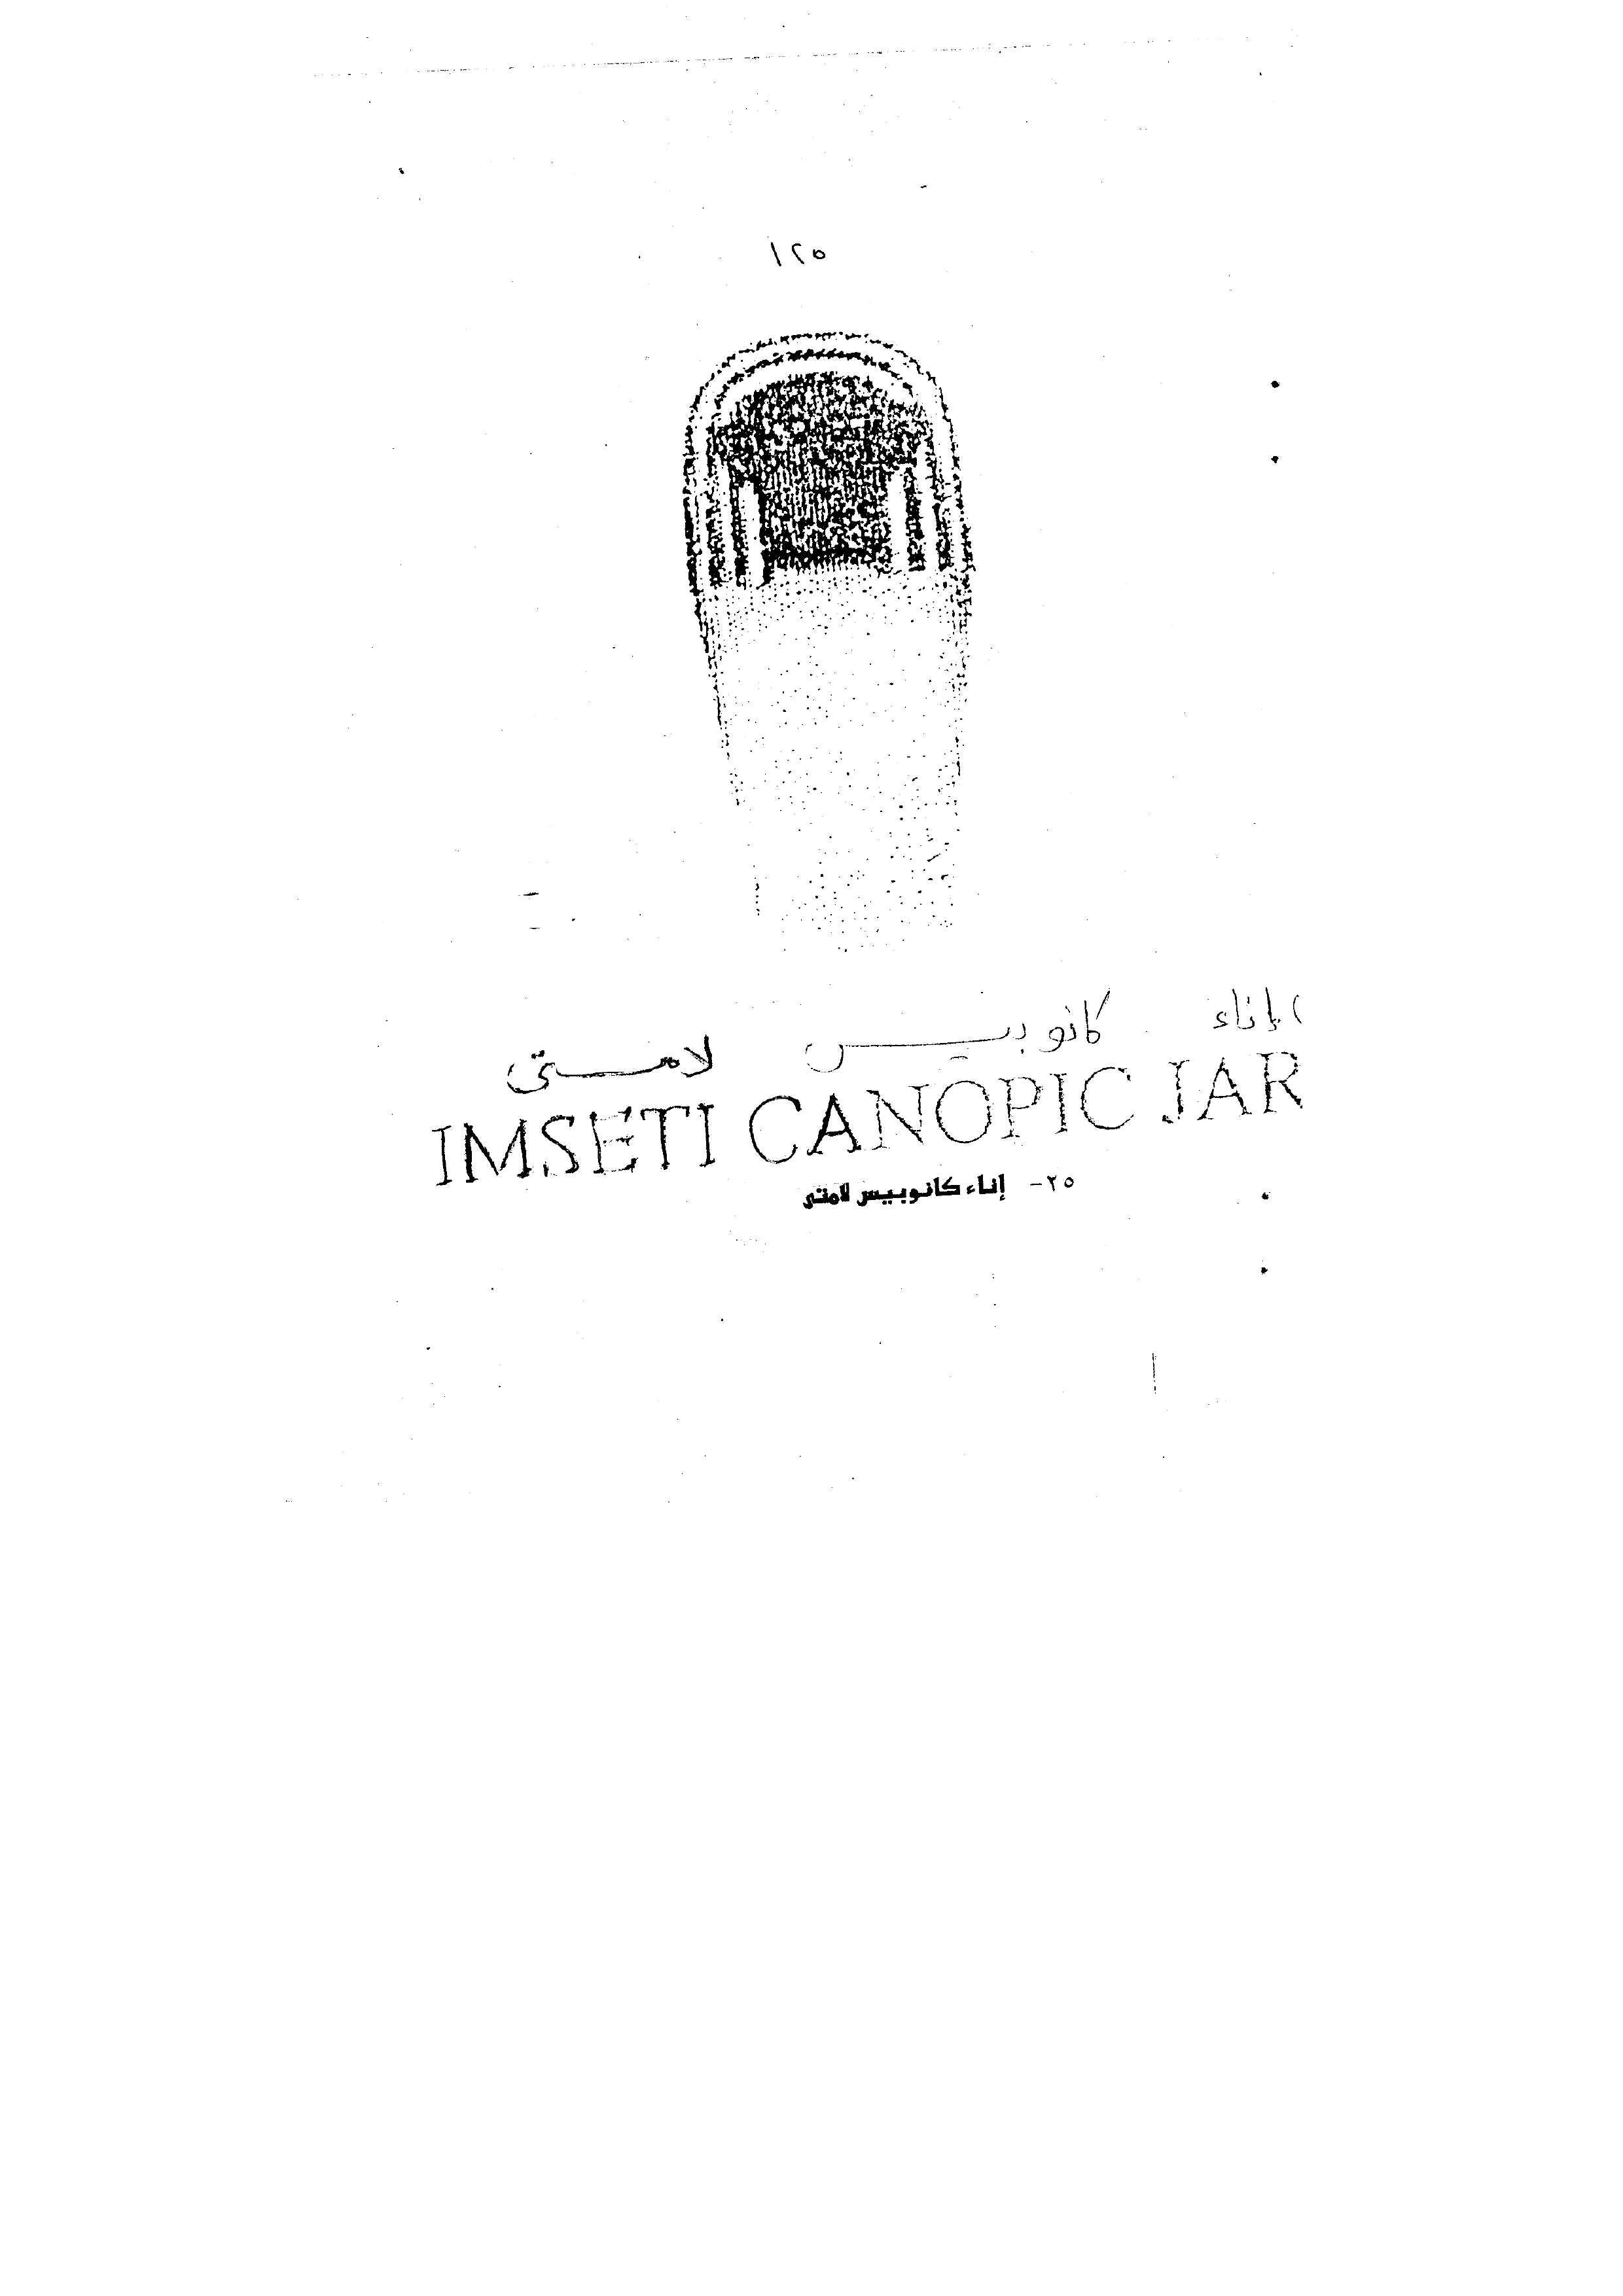 ١٢٥
إناء كانوبيس لامستى
IMSETI CANOPIC JAR
٢٥- إناء كانوبيس لامتى